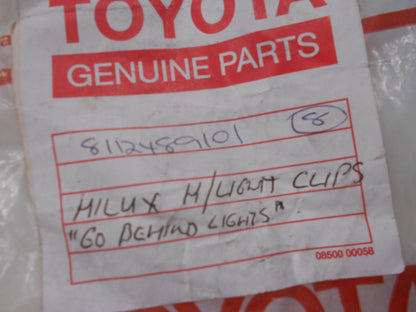 TOYOTA
GENUINE PARTS
8112489101 8
HILUX H/LIGHT CLIPS
"GO BEHIND LIGHTS"
08500 00058
TOYOTA